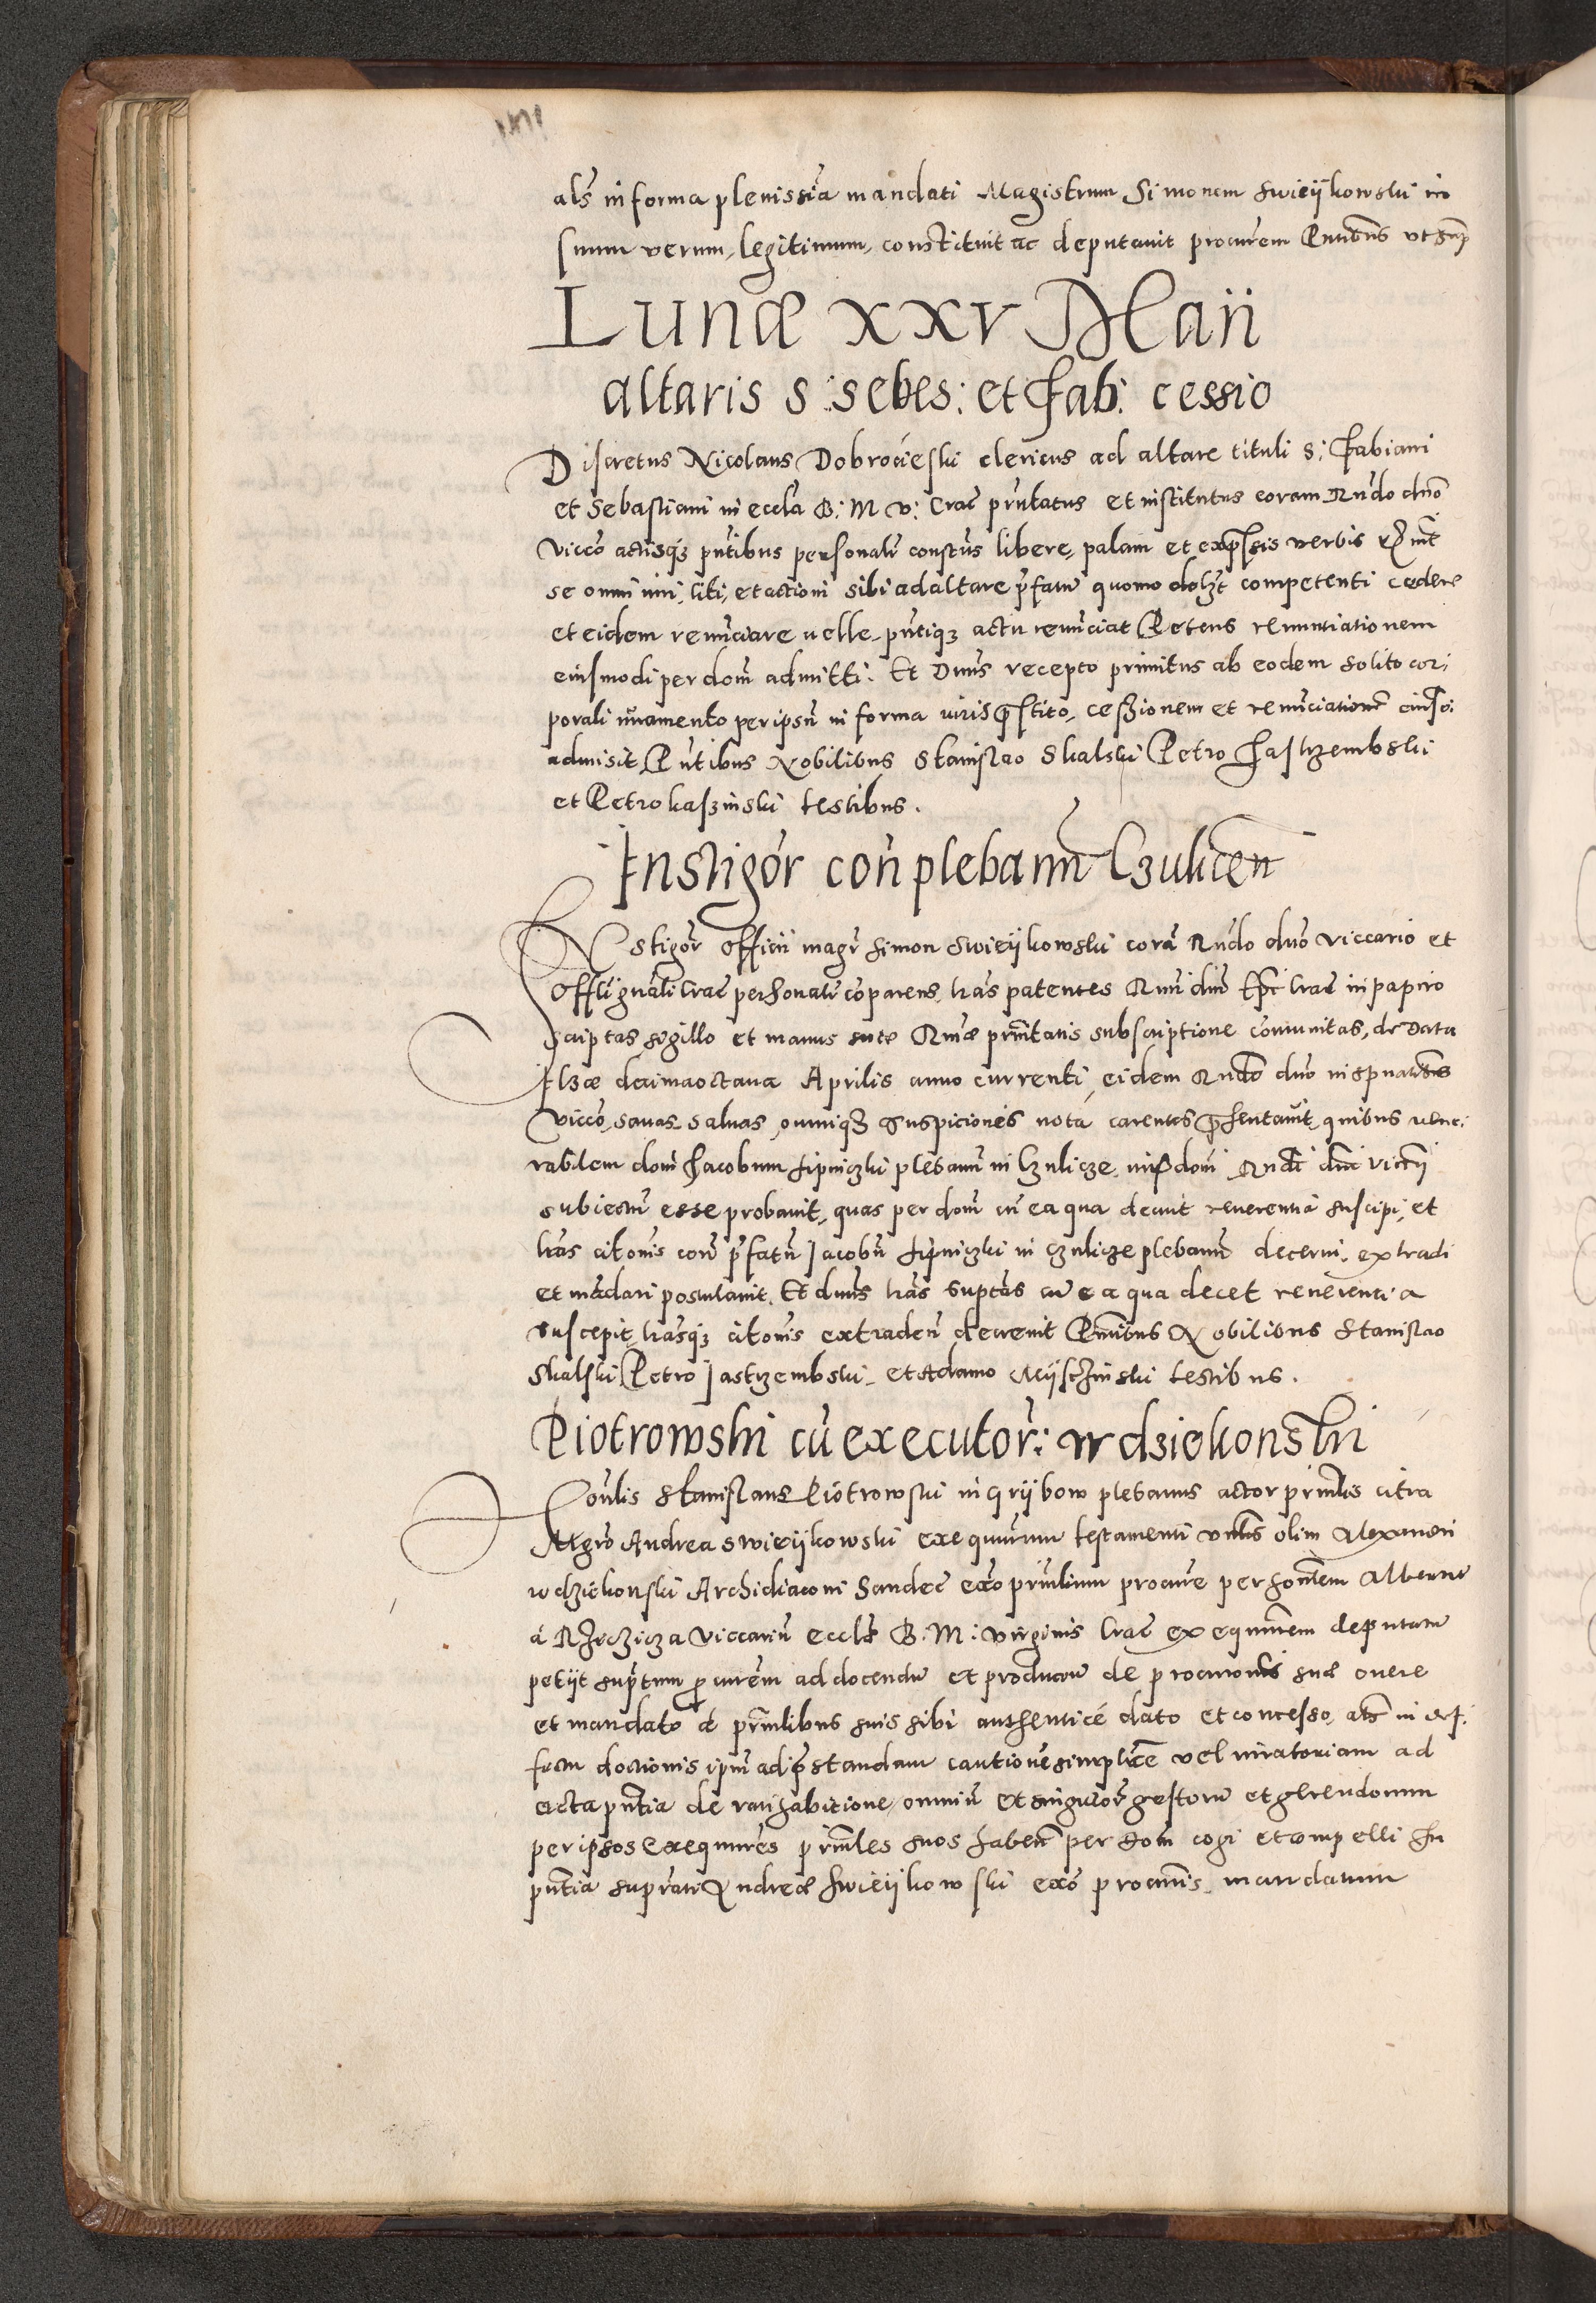 als in forma plenissia mandati Magistrum Simonem Swieijkowski in
suum verum, legitimum, constituit ac deputavit procurem Pntibus ut sup
Lunæ xxv Maii
altaris S: Sebes: et Fab: cessio
Discretus Nicolaus Dobrocieski clericus ad altare tituli S: Fabiani
et Sebastiani in eccla B: M v: Crac pntatus et institutus coram Rndo dno
vicco actisqz pntibus personalr constus libere, palam et expssis verbis
se omni iuri, liti, et actioni sibi ad altare pfatum quomodolzt competenti cedere
et eidem renunciare velle, pntiqz actu renunciat Petens renuntiationem
eiusmodi per dom admitti. Et Dnus recepto primitus ab eodem solito cor:
porali iuramento per ipsu in forma iuris pstito, cessionem et renunciationem
admisit, Pntibus Nobilibus Stanislao Skalski Petro Jastrzembski
et Petro kaszinski testibus.
Instigor con plebanum Czulicen
Instigor Officii magr Simon Swieijkowski cora Rndo dno viccario et
Offli gnali Crac personalr coparens, lras patentes Rmi dni Epi Crac in papiro
scriptas sigillo et manus suæ Rmæ pntatis subscriptione comunitas, de Data
Ilzæ decimaoctava Aprilis anno currenti, eidem Rndo dno in spualibus
vicco, sanas salvas, omniqz suspicionis nota carentes psentavit, quibus vene:
rabilem dom Jacobum Lipniczki plebanum in Czulicze, Rndi dni viccrii
subiectum esse probavit, quas per dom cu ea qua decuit reverentia suscipi, et
lras citonis con pfatu Jacobu Lipniczki in Czulicze plebanum decerni, extradi
et mandari postulavit. Et dnus lras suptas cu ea qua decet reverentia
suscepit, lrasqz citonis extraden decrevit Pntibus Nobilibus Stanislao
Skalski Petro Jastrzembski, et Adamo Mijschinski testibus.
Piotrowski cu executor: Wdziekonski
Honlis Stanislaus Piotrowski in Grijbow plebanus actor prinlis citra
Mgro Andrea Swieijkowski exequutorum testamenti vnlis olim Alexandri
Wdziekonski Archidiaconi Sandec exo prinlium procure personlem Albertum
a Rzeczicza viccariu eccle B: M: Virginis Crac exequutorem deputatum
petijt suptum procurem ad docendum et producendum de procuronis suæ onere
et mandato a prinlibus suis sibi authentice dato et concesso, als in def:
fectu doctionis ipm ad pstandam cautione simplice vel iuratoriam ad
acta pntia de ratihabitione, omniu et singulor gestorum et gerendorum
per ipsos exequutores prinles suos haben per dom cogi et compelli In
pntia suprati Andreæ Swieijkowski exo procuris, mandatum